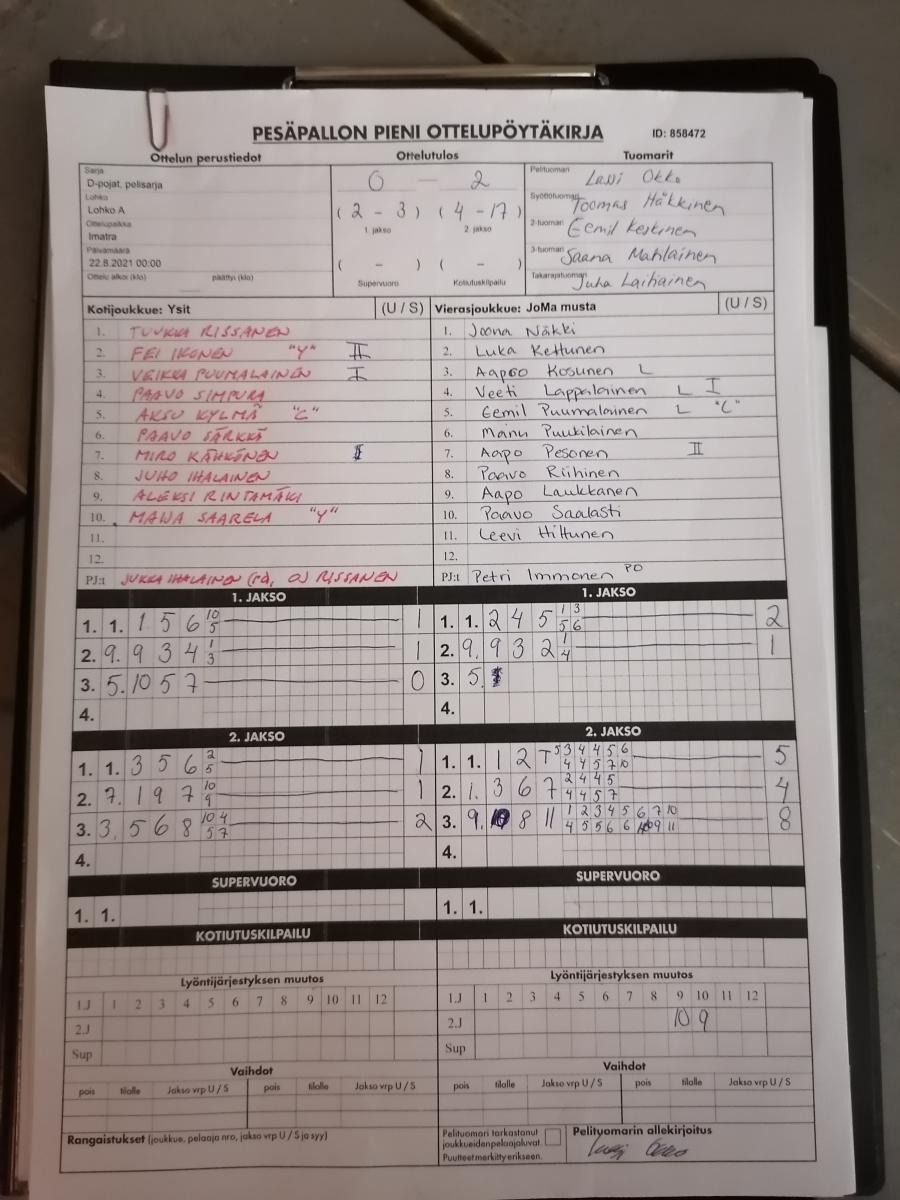 PESÄPALLON PIENI OTTELUPÖYTÄKIRJA ID: 858472
Ottelun perustiedot Ottelutulos Tuomarit
Sarja
D-pojat, pelisarja
Lohko
Lohko A
Ottelupaikka
Imatra
Päivämäärä
22.8.2021 00:00
Ottelu alkoi (klo) päättyi (klo)
0 - 2
( 2 - 3 ) ( 4 - 17 )
1. jakso 2. jakso
( - ) ( - )
Supervuoro Kotiutuskilpailu
Pelituomari Lassi Okko
Syöttötuomari Toomas Häkkinen
2-tuomari Eemil Keskinen
3-tuomari Saana Matilainen
Takarajatuomari Juha Laihiainen
Kotijoukkue: Ysit (U / S)
1. TUUKKA RISSANEN
2. FEI IKONEN "Y" II
3. VEIKKA PUUMALAINEN I
4. PAAVO SIMPURA
5. AKSU KYLMÄ "C"
6. PAAVO SÄRKKÄ
7. MIRO KÄHKÖNEN
8. JUHO IHALAINEN
9. ALEKSI RINTAMÄKI
10. MAIJA SAARELA "Y"
11.
12.
PJ:t JUKKA IHALAINEN (PJ, O) RISSANEN
Vierasjoukkue: JoMa musta (U / S)
1. Joona Näkki
2. Luka Kettunen
3. Aapo Kosunen L
4. Veeti Lappalainen L I
5. Eemil Puumalainen L "C"
6. Manu Puukilainen
7. Aapo Pesonen II
8. Paavo Riihinen
9. Aapo Laukkanen
10. Paavo Saalasti
11. Leevi Hiltunen
12.
PJ:t Petri Immonen PO
1. JAKSO
1. 1. 1 5 6 10/5 1
2. 9. 9 3 4 1/3 1
3. 5. 10 5 7 0
4.
1. JAKSO
1. 1. 2 4 5 1/5 3/6 2
2. 9. 9 3 2 1/4 1
3. 5.
4.
2. JAKSO
1. 1. 3 5 6 2/5 1
2. 7. 1 9 7 10/9 1
3. 3. 5 6 8 10/5 4/7 2
4.
2. JAKSO
1. 1. 1 2 T5 3/4 4/4 4/5 5/7 6/10 5
2. 1. 3 6 7 2/4 4/4 4/5 5/7 4
3. 9. 8 11 1/4 2/5 3/5 4/6 5/6 6/10 7/9 10/11 8
4.
SUPERVUORO
1. 1.
SUPERVUORO
1. 1.
KOTIUTUSKILPAILU
KOTIUTUSKILPAILU
Lyöntijärjestyksen muutos
1.J 1 2 3 4 5 6 7 8 9 10 11 12
2.J
Sup
Lyöntijärjestyksen muutos
1.J 1 2 3 4 5 6 7 8 9 10 11 12
2.J 10 9
Sup
Vaihdot
pois tilalle Jakso vrp U / S pois tilalle Jakso vrp U / S
Vaihdot
pois tilalle Jakso vrp U / S pois tilalle Jakso vrp U / S
Rangaistukset (joukkue, pelaaja nro, jakso vrp U / S ja syy)
Pelituomari tarkastanut
joukkueiden pelaajaluvat.
Puutteet merkitty erikseen.
Pelituomarin allekirjoitus